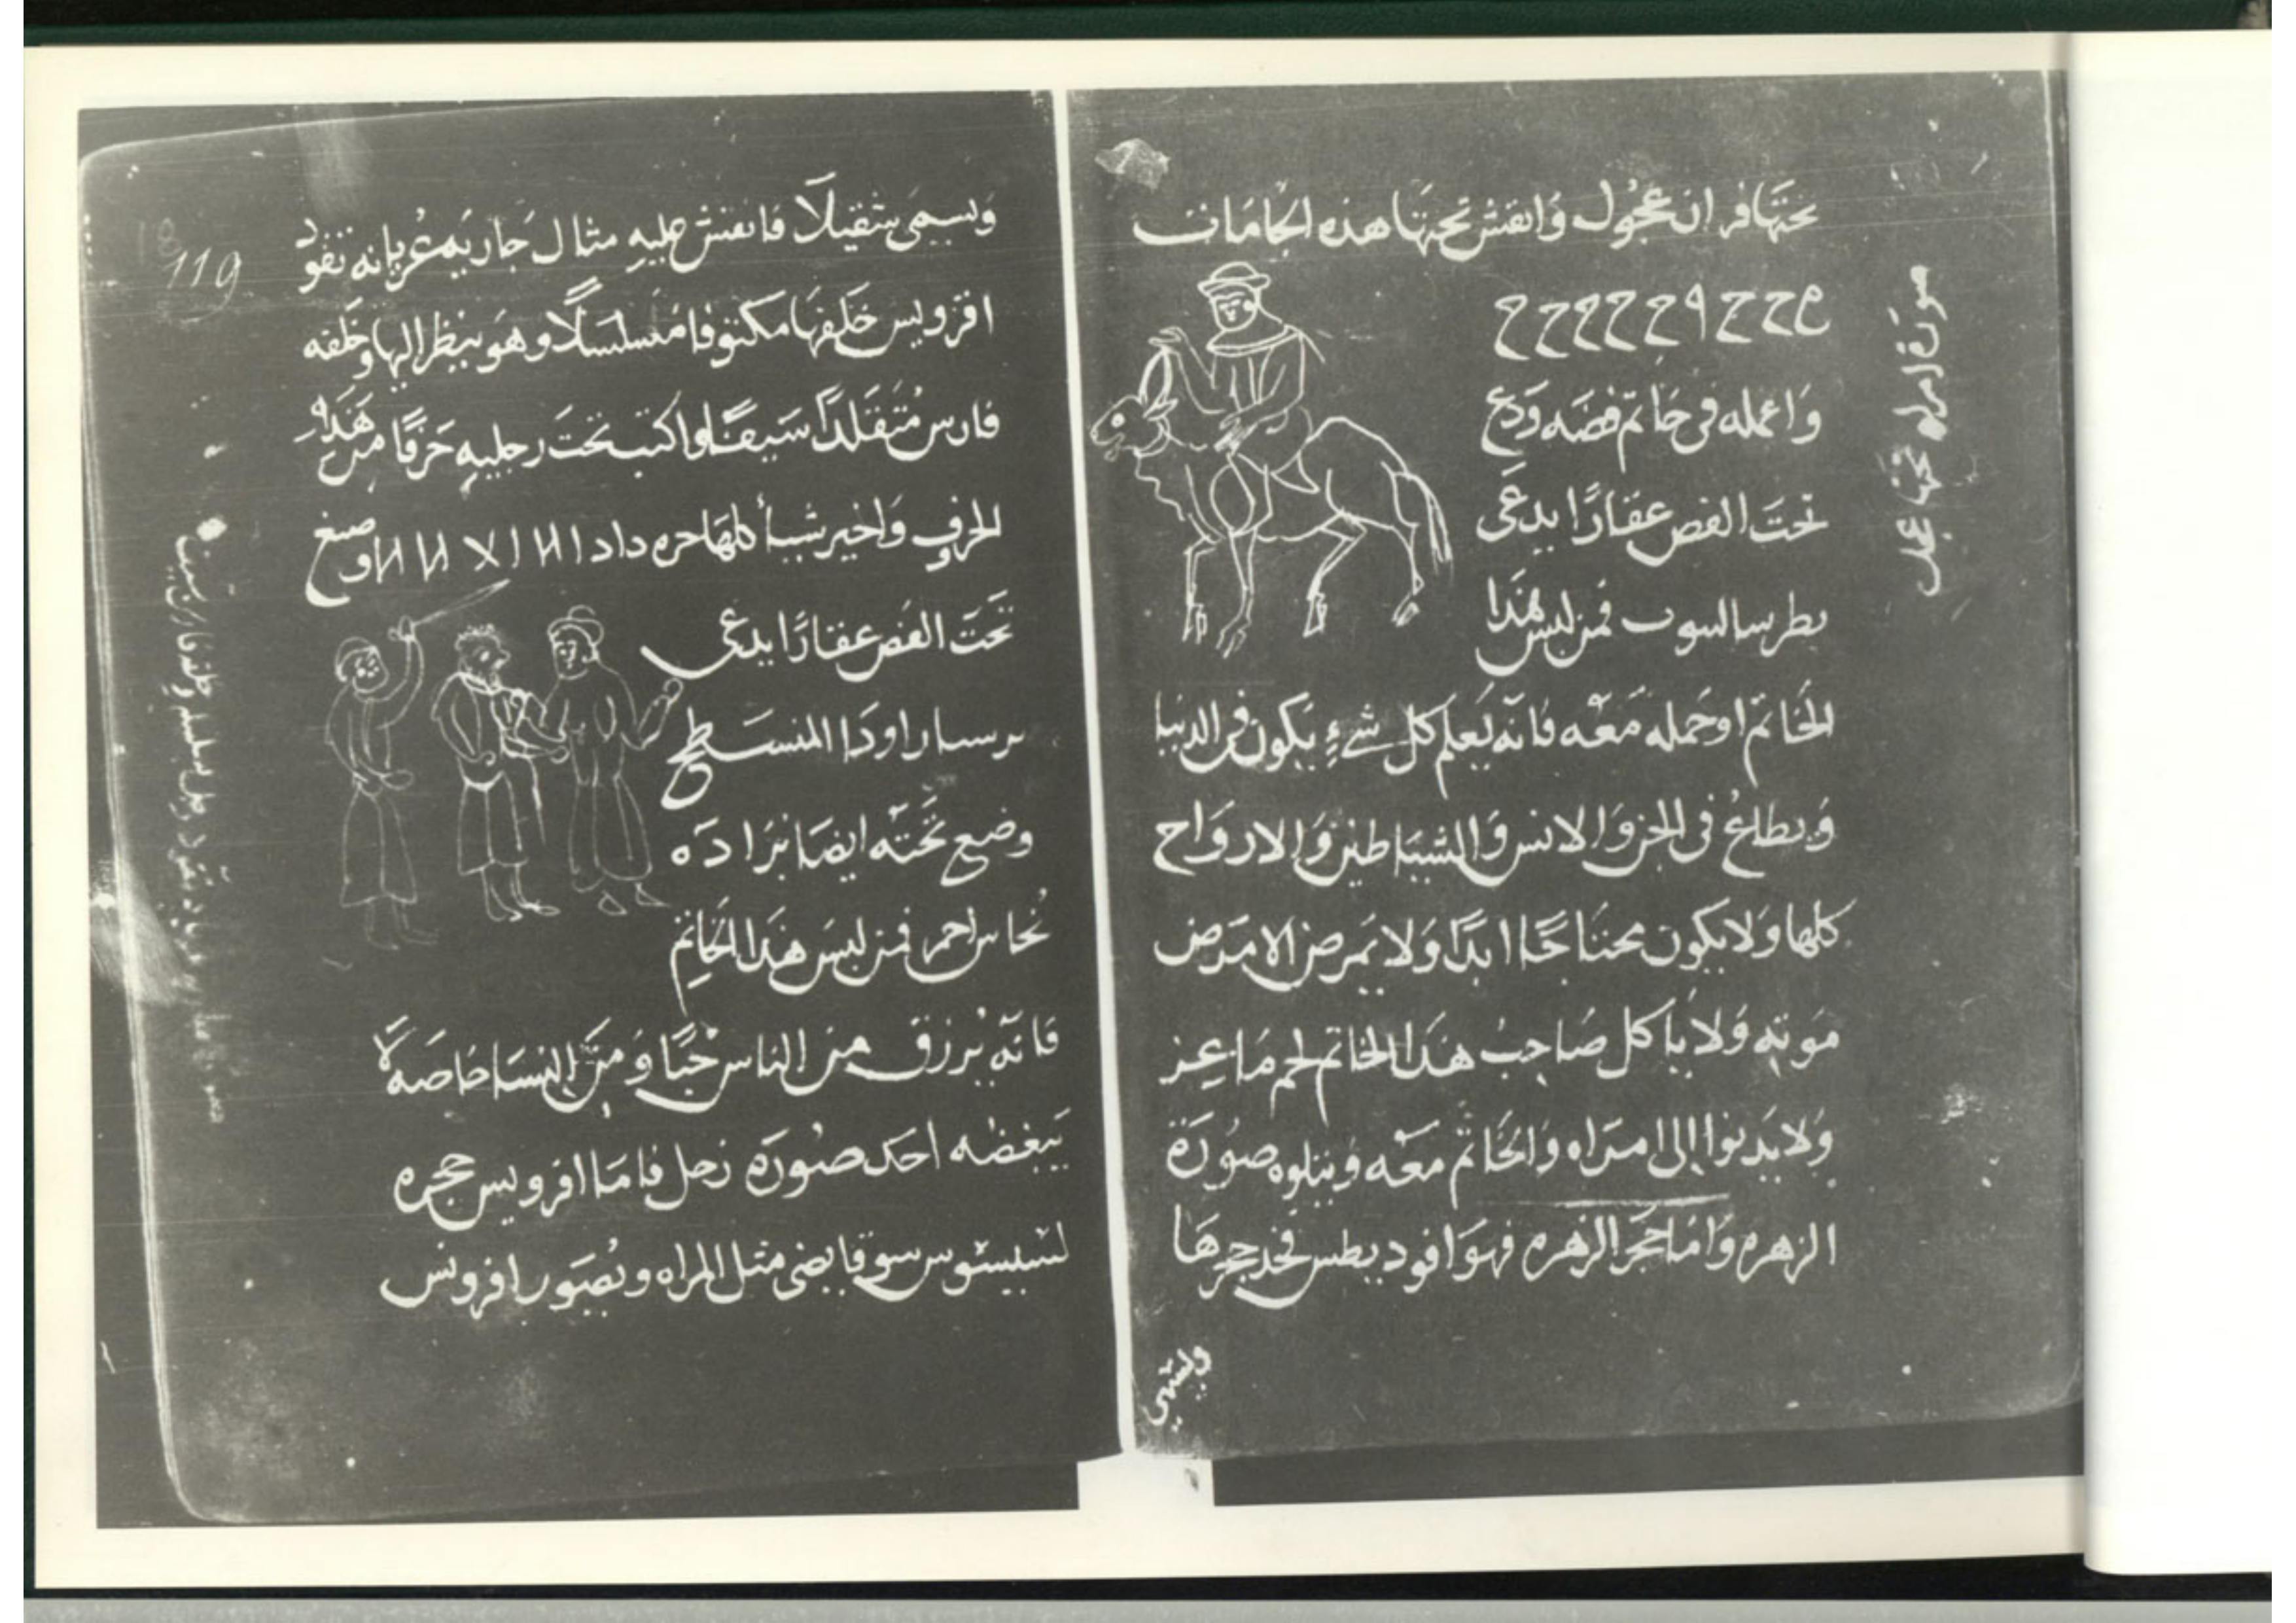 تحتها فران عجول وَانقش تحتها هذه الجامات
وَاعمله فى خاتم فضه وَدع
تحتَ الفص عقارًا يدعَى
بطرسا لسوب فمن لبس هَذا
الخَاتم اوحَمله مَعَه فانه يَعلم كل شىءٍ يكون فى الدنيا
وَيطلعُ فى الجن وَالانس وَالشيَاطين وَالاروَاح
كلها وَلا يكون محتاجًا ابدًا وَلا يَمرض الا مَرض
مَوته وَلا ياكل صَاحِبُ هَذا الخاتم لحم مَاعِز
وَلا يَدنوا الى امرَاه وَالخَاتم مَعَه وَيتلوه صُورَة
الزهره وَامَا حَجَر الزهره فهوَ افود يطس فخذ حجرهَا
ويسمى
صورة امراه تحتها عجل
وَيسمَى شقيلًا فانقش عليهِ مثال جَاريَه عُريانه تقود
افرويس خَلفهَا مكتوفا مُسلسَلًا وهوَ ينظر اليها وخَلفه
فارس مُتَقلدًا سَيفًا وَاكتب تحتَ رجليهِ حَرفًا من هَذه
الحرفِ وَاخير شيأ كلهَا حره داد ا وضع
تحَتَ الفص عقارًا يدعى
برسار اودَا المنسَطح
وضع تحَتَه ايضا برَادَه
نُحاس احمر فمن لبسَ هَذا الخَاتِم
فانَه يُرزق من الناس حُبًا وَمنَ النِسَا خاصَه لَا
يَبغضُه احَد صُورَة زحل فامَا افرويس حجره
لسَيسوس سوقا يضى مثل المراه ويُصَور افرويس
119